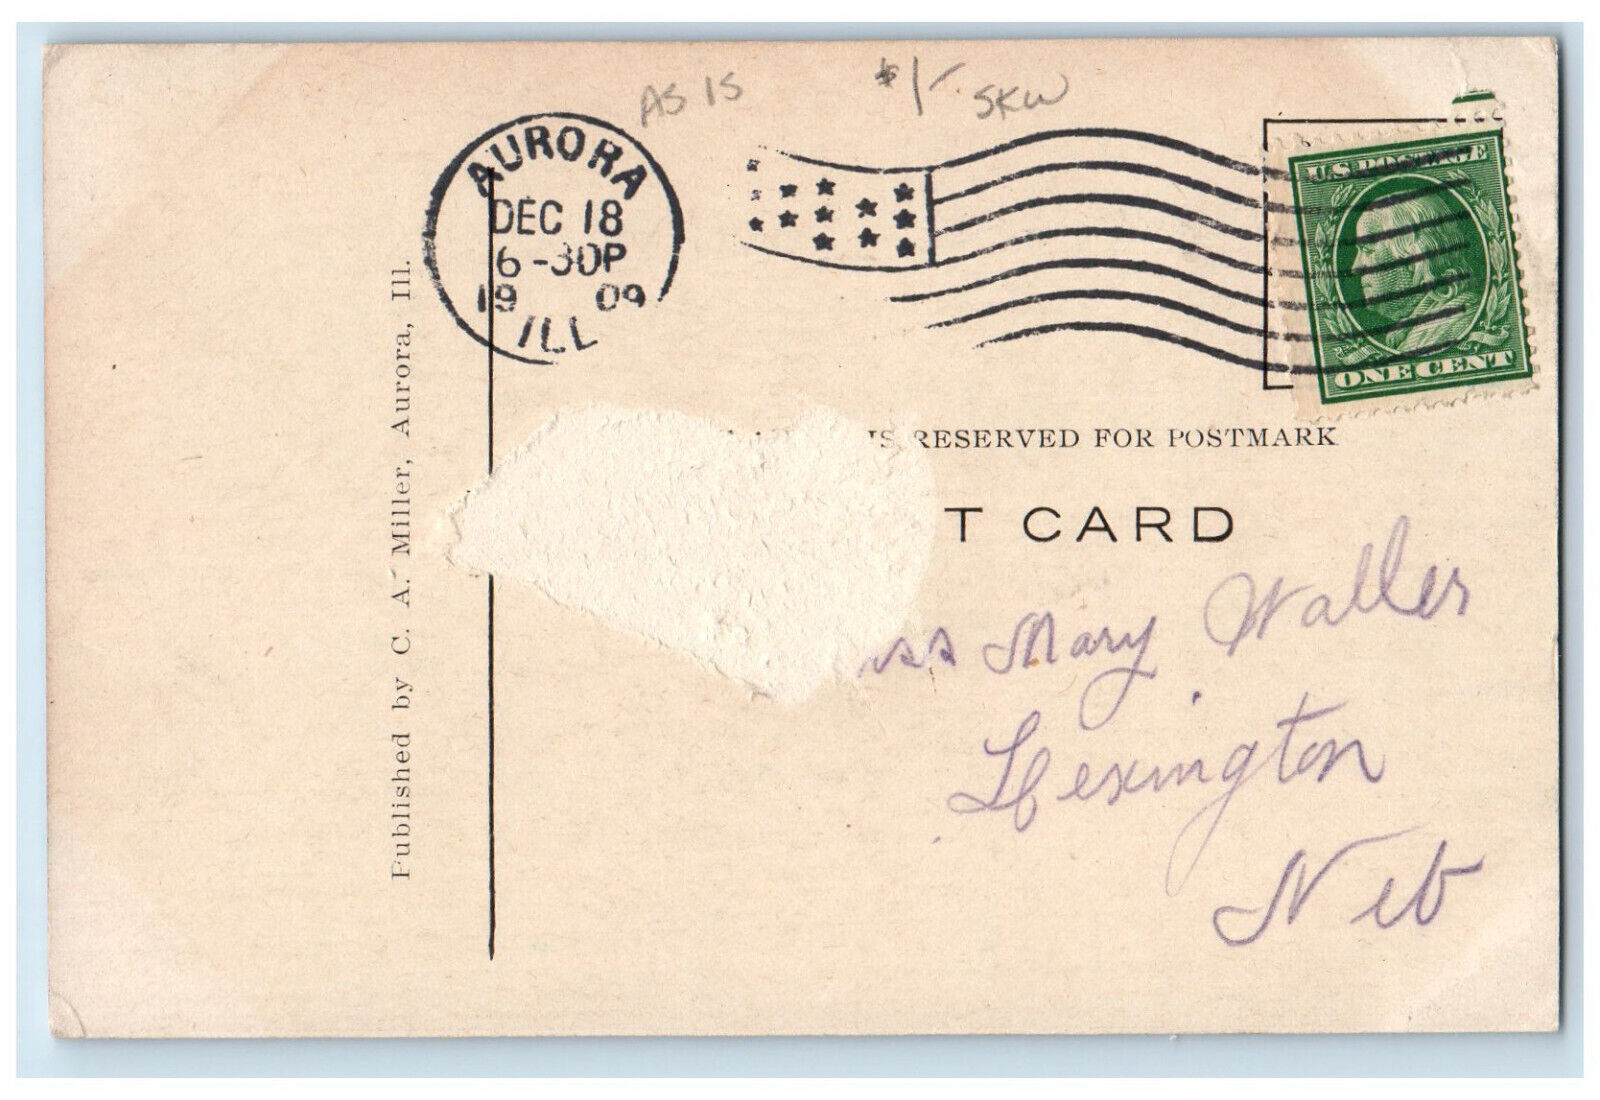 AS IS $1- SKW
AURORA
DEC 18
6-30P
19 09
ILL
U.S. POSTAGE
ONE CENT
IS RESERVED FOR POSTMARK
T CARD
iss Mary Waller
Lexington
Neb
Published by C. A. Miller, Aurora, Ill.